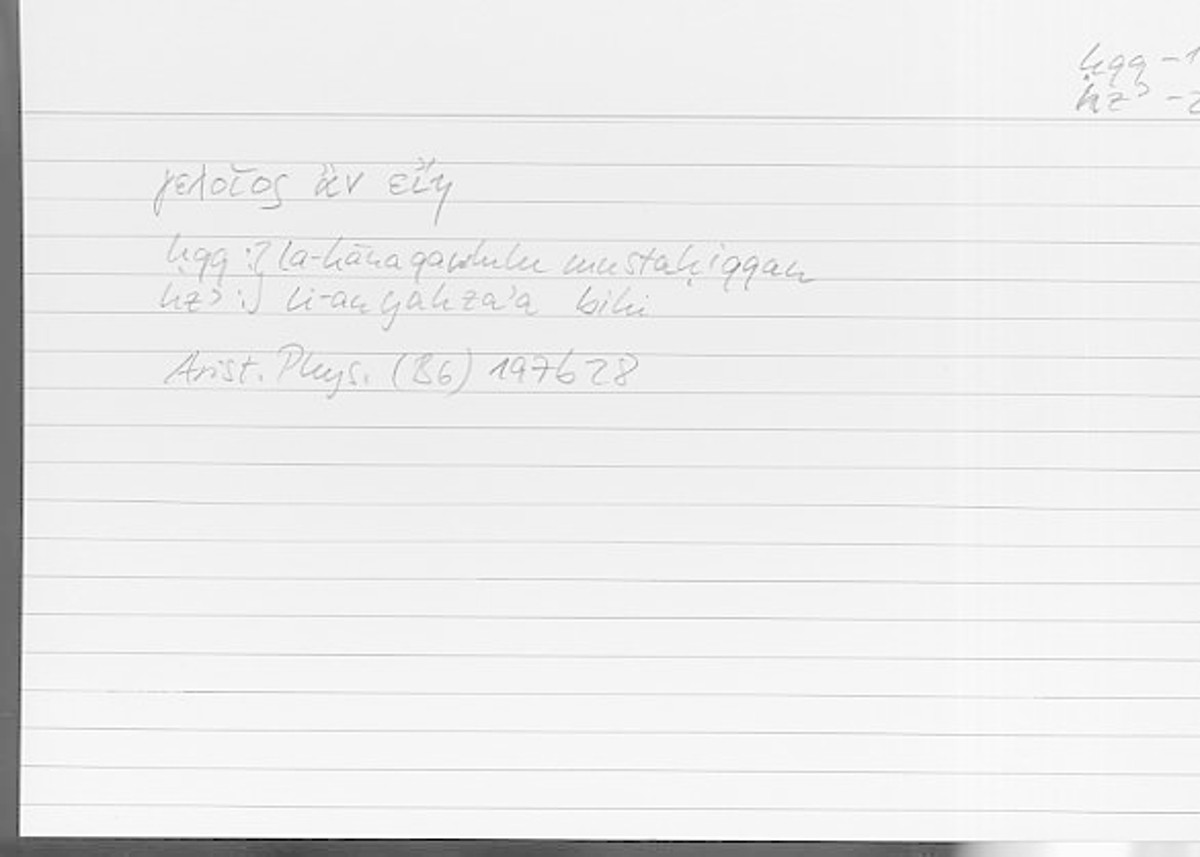 ḥqq – 1
hzʾ – 2
γελοῖος ἂν εἴη
ḥqq :} la-kāna qawluhu mustaḥiqqan
hzʾ :} li-an yahzaʾa bihi
Arist. Phys. (B6) 197b28